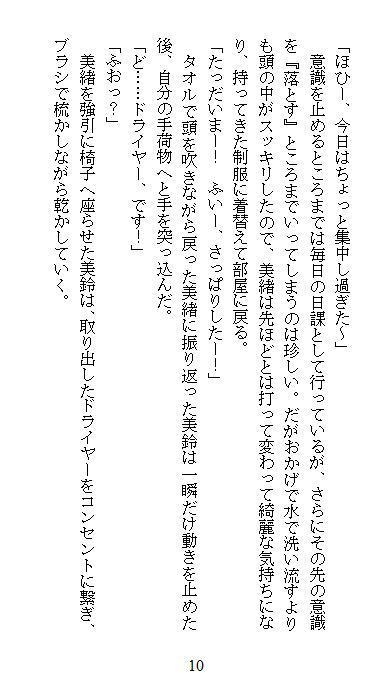 「ほひー、今日はちょっと集中し過ぎた～」
　意識を止めるところまでは毎日の日課として行っているが、さらにその先の意識
を『落とす』ところまでいってしまうのは珍しい。だがおかげで水で洗い流すより
も頭の中がスッキリしたので、美緒は先ほどとは打って変わって綺麗な気持ちにな
り、持ってきた制服に着替えて部屋に戻る。
「たっだいまー！　ふいー、さっぱりしたー！」
　タオルで頭を吹きながら戻った美緒に振り返った美鈴は一瞬だけ動きを止めた
後、自分の手荷物へと手を突っ込んだ。
「ど……ドライヤー、です！」
「ふおっ？」
　美緒を強引に椅子へ座らせた美鈴は、取り出したドライヤーをコンセントに繋ぎ、
ブラシで梳かしながら乾かしていく。
10